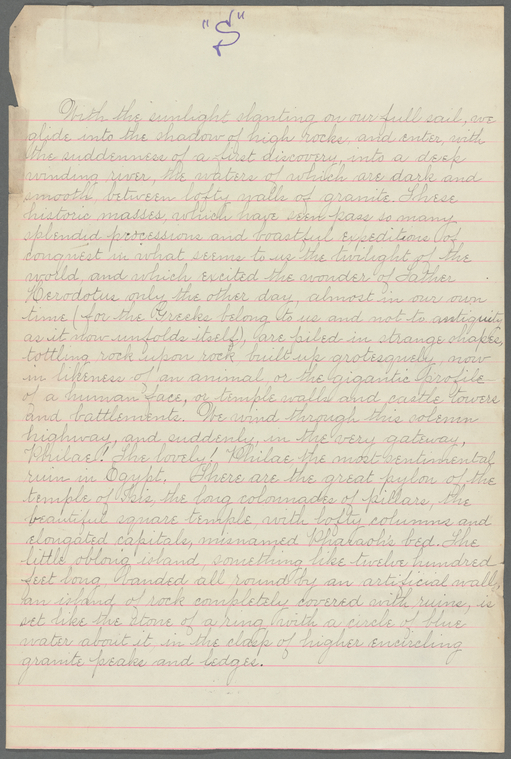 "S"
With the sunlight slanting on our full sail, we
glide into the shadow of high rocks, and enter, with
the suddenness of a first discovery, into a deep
winding river, the waters of which are dark and
smooth, between lofty walls of granite. These
historic masses, which have seen pass so many
splendid processions and boastful expeditions of
conquest in what seems to us the twilight of the
world, and which excited the wonder of Father
Herodotus only the other day, almost in our own
time (for the Greeks belong to us and not to antiquity
as it now unfolds itself), are piled in strange shapes,
tottling rock upon rock, built up grotesquely, now
in likeness of an animal, or the gigantic profile
of a human face, or temple walls and castle towers
and battlements. We wind through this solemn
highway, and suddenly, in the very gateway,
Philae! The lovely! Philae, the most sentimental
ruin in Egypt. There are the great pylon of the
temple of Isis, the long colonnades of pillars, the
beautiful square temple, with lofty columns and
elongated capitals, misnamed Pharaoh's bed. The
little oblong island, something like twelve hundred
feet long, banded all round by an artificial wall,
an island of rock completely covered with ruins, is
set like the stone of a ring, with a circle of blue
water about it, in the clasp of higher encircling
granite peaks and ledges.